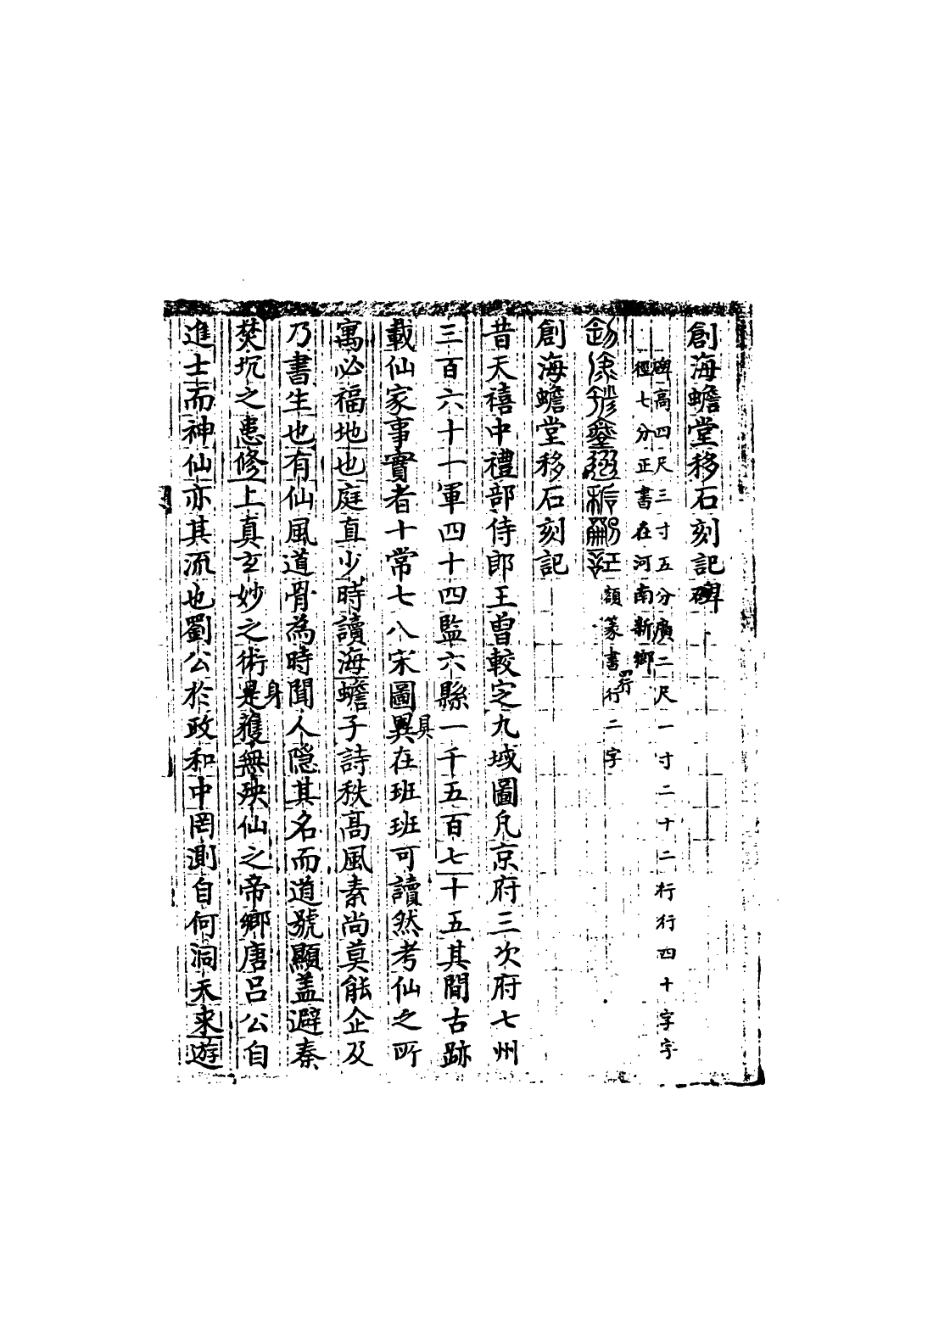 創海蟾堂移石刻記碑
碑高四尺三寸五分廣二尺一寸二十二行行四十字字
徑七分正書在河南新鄉
創海蟾堂移石刻記
額篆書
四行行二字
創海蟾堂移石刻記
昔天禧中禮部侍郎王曾較定九域圖凡京府三次府七州
三百六十一軍四十四監六縣一千五百七十五其間古跡
載仙家事實者十常七八宋圖異具在班班可讀然考仙之所
寓必福地也庭直少時讀海蟾子詩秩高風素尚莫能企及
乃書生也有仙風道骨為時聞人隱其名而道號顯蓋避秦
焚坑之患修上真玄妙之術是身獲無殃仙之帝鄉唐呂公自
進士而神仙亦其流也劉公於政和中罔測自何洞天來遊